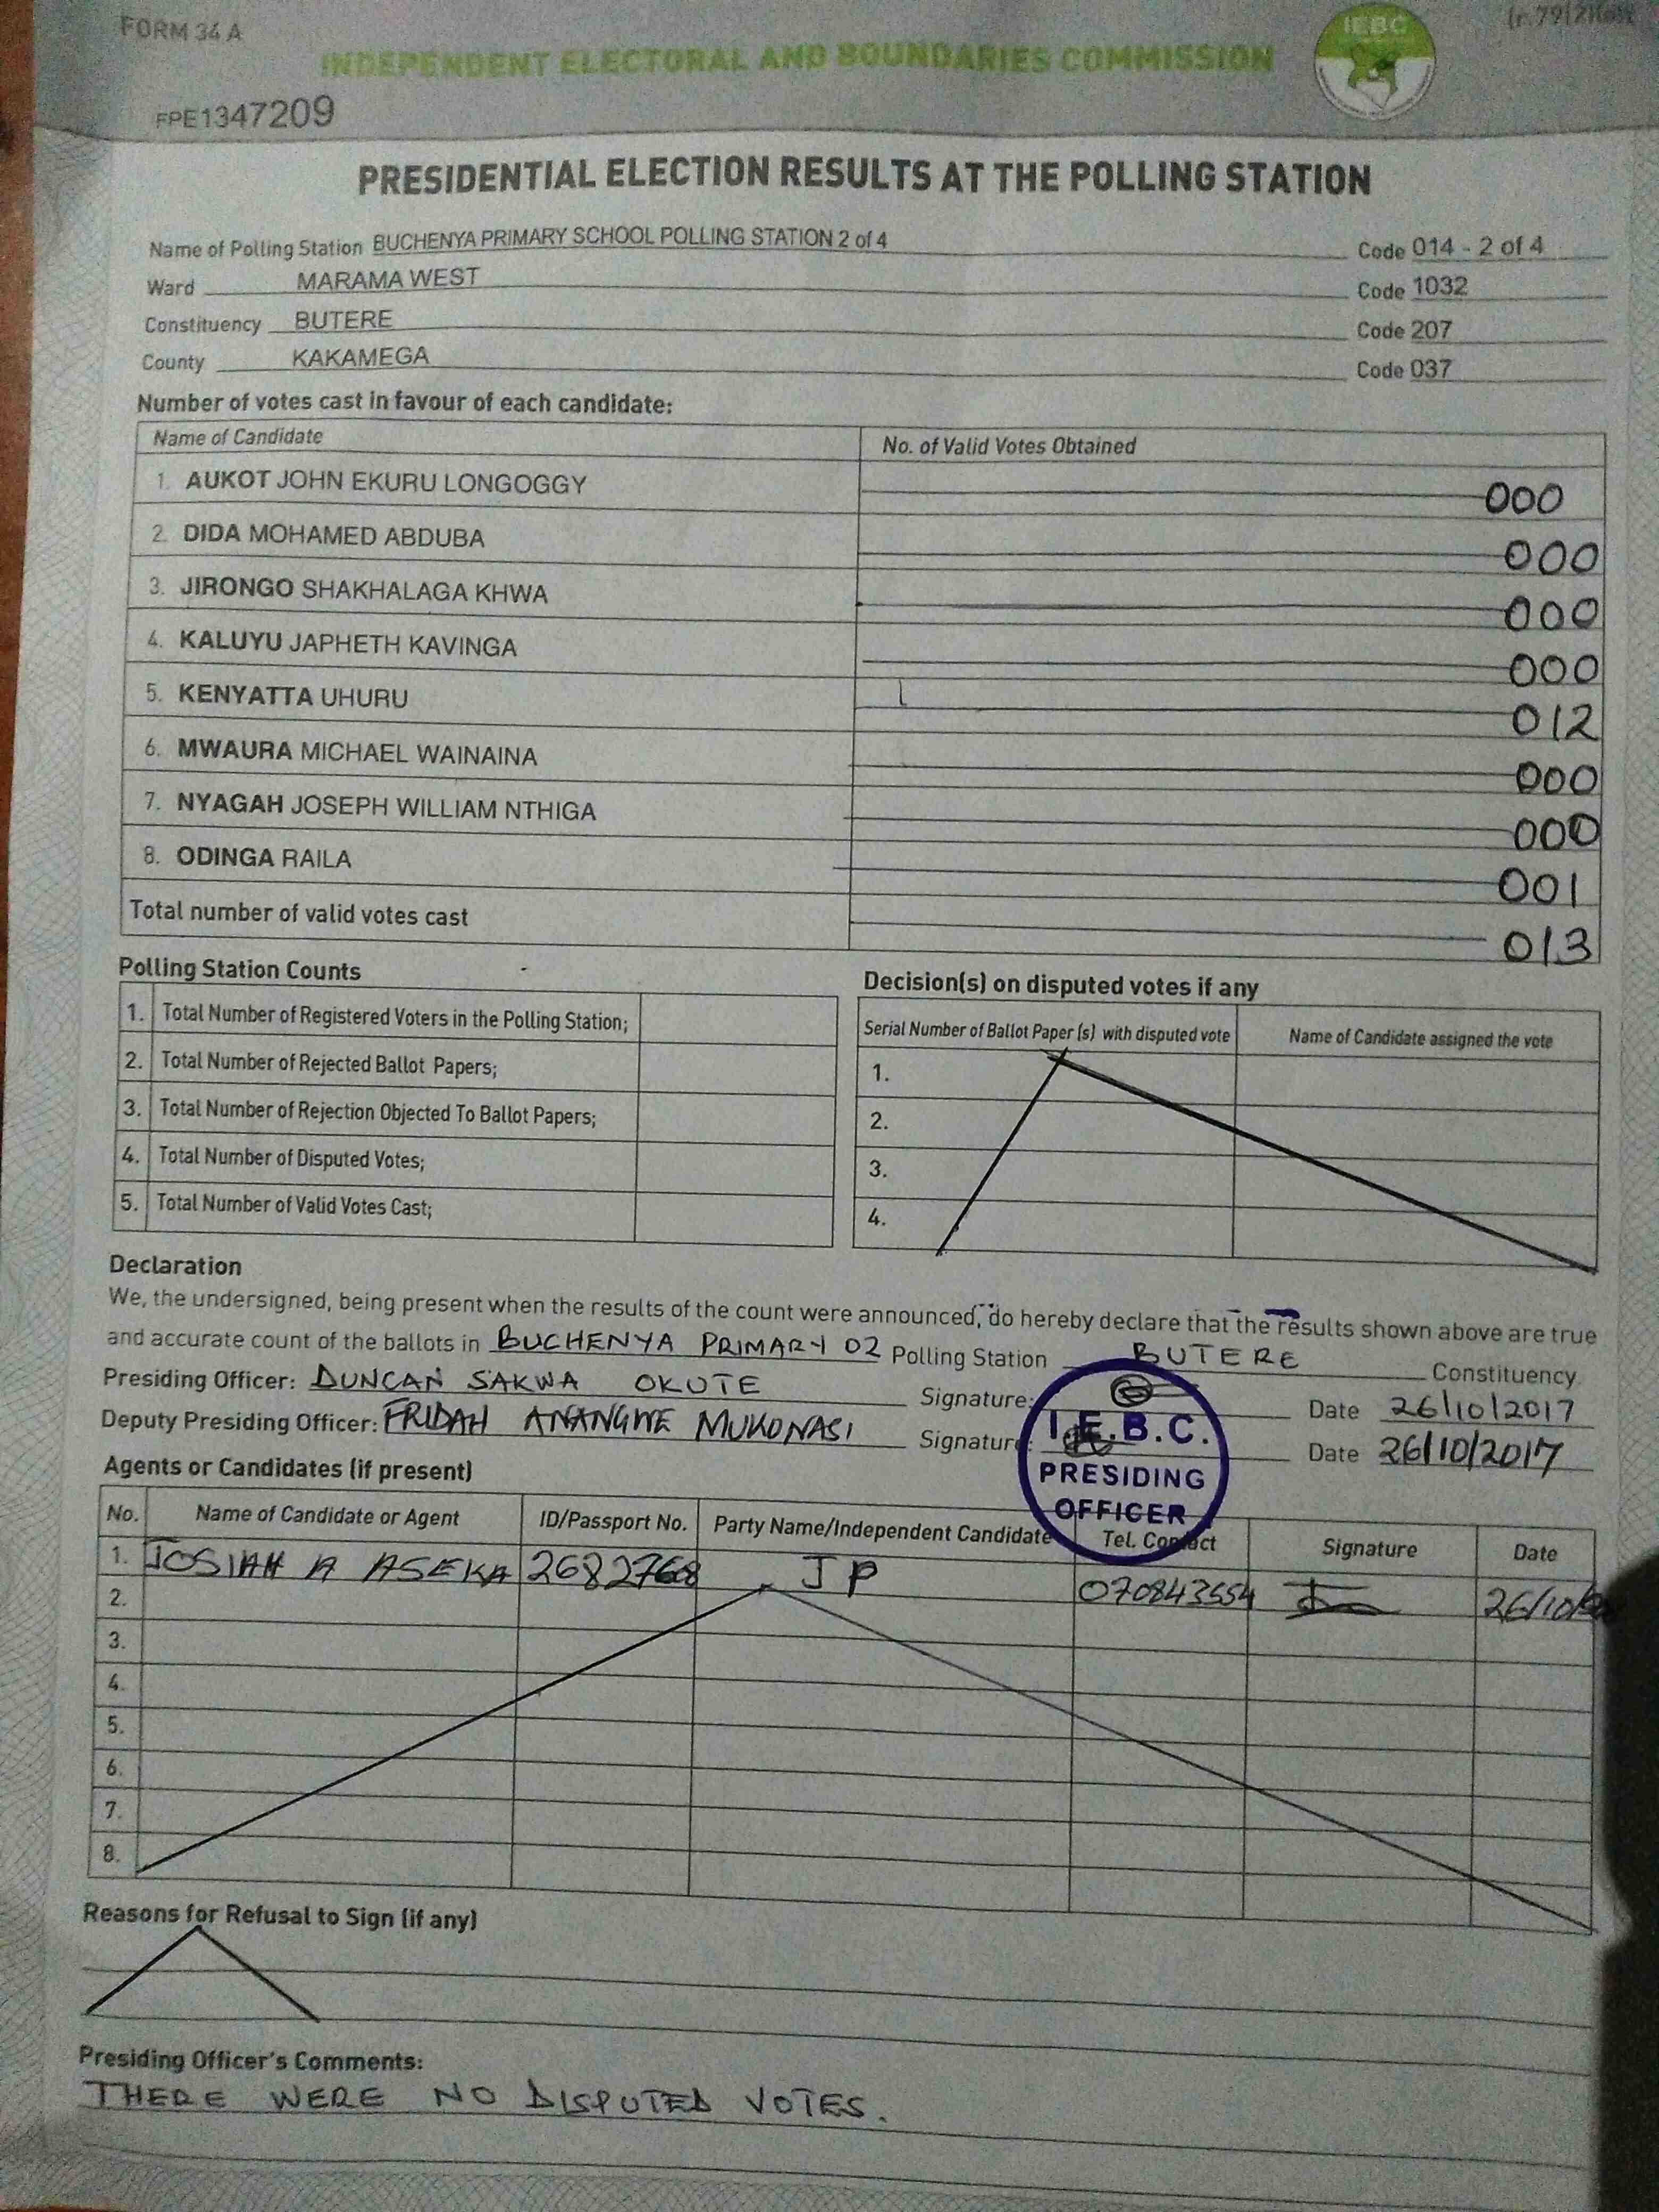 FORM 34 A
IEBC
INDEPENDENT ELECTORAL AND BOUNDARIES COMMISSION
FPE1347209
PRESIDENTIAL ELECTION RESULTS AT THE POLLING STATION
Name of Polling Station BUCHENYA PRIMARY SCHOOL POLLING STATION 2 of 4 Code 014 - 2 of 4
Ward MARAMA WEST Code 1032
Constituency BUTERE Code 207
County KAKAMEGA Code 037
Number of votes cast in favour of each candidate:
Name of Candidate No. of Valid Votes Obtained
1. AUKOT JOHN EKURU LONGOGGY 000
2. DIDA MOHAMED ABDUBA 000
3. JIRONGO SHAKHALAGA KHWA 000
4. KALUYU JAPHETH KAVINGA 000
5. KENYATTA UHURU 012
6. MWAURA MICHAEL WAINAINA 000
7. NYAGAH JOSEPH WILLIAM NTHIGA 000
8. ODINGA RAILA 001
Total number of valid votes cast 013
Polling Station Counts
1. Total Number of Registered Voters in the Polling Station;
2. Total Number of Rejected Ballot Papers;
3. Total Number of Rejection Objected To Ballot Papers;
4. Total Number of Disputed Votes;
5. Total Number of Valid Votes Cast;
Decision(s) on disputed votes if any
Serial Number of Ballot Paper (s) with disputed vote Name of Candidate assigned the vote
1.
2.
3.
4.
Declaration
We, the undersigned, being present when the results of the count were announced, do hereby declare that the results shown above are true
and accurate count of the ballots in BUCHENYA PRIMARY 02 Polling Station BUTERE Constituency.
Presiding Officer: DUNCAN SAKWA OKUTE Signature: Date 26/10/2017
Deputy Presiding Officer: FRIDAH ANANGWE MUKONASI Signature: Date 26/10/2017
I.E.B.C.
PRESIDING
OFFICER
Agents or Candidates (if present)
No. Name of Candidate or Agent ID/Passport No. Party Name/Independent Candidate Tel. Contact Signature Date
1. JOSIAH A ASEKA 26827668 JP 070843554 26/10/
2.
3.
4.
5.
6.
7.
8.
Reasons for Refusal to Sign (if any)
Presiding Officer's Comments:
THERE WERE NO DISPUTED VOTES.